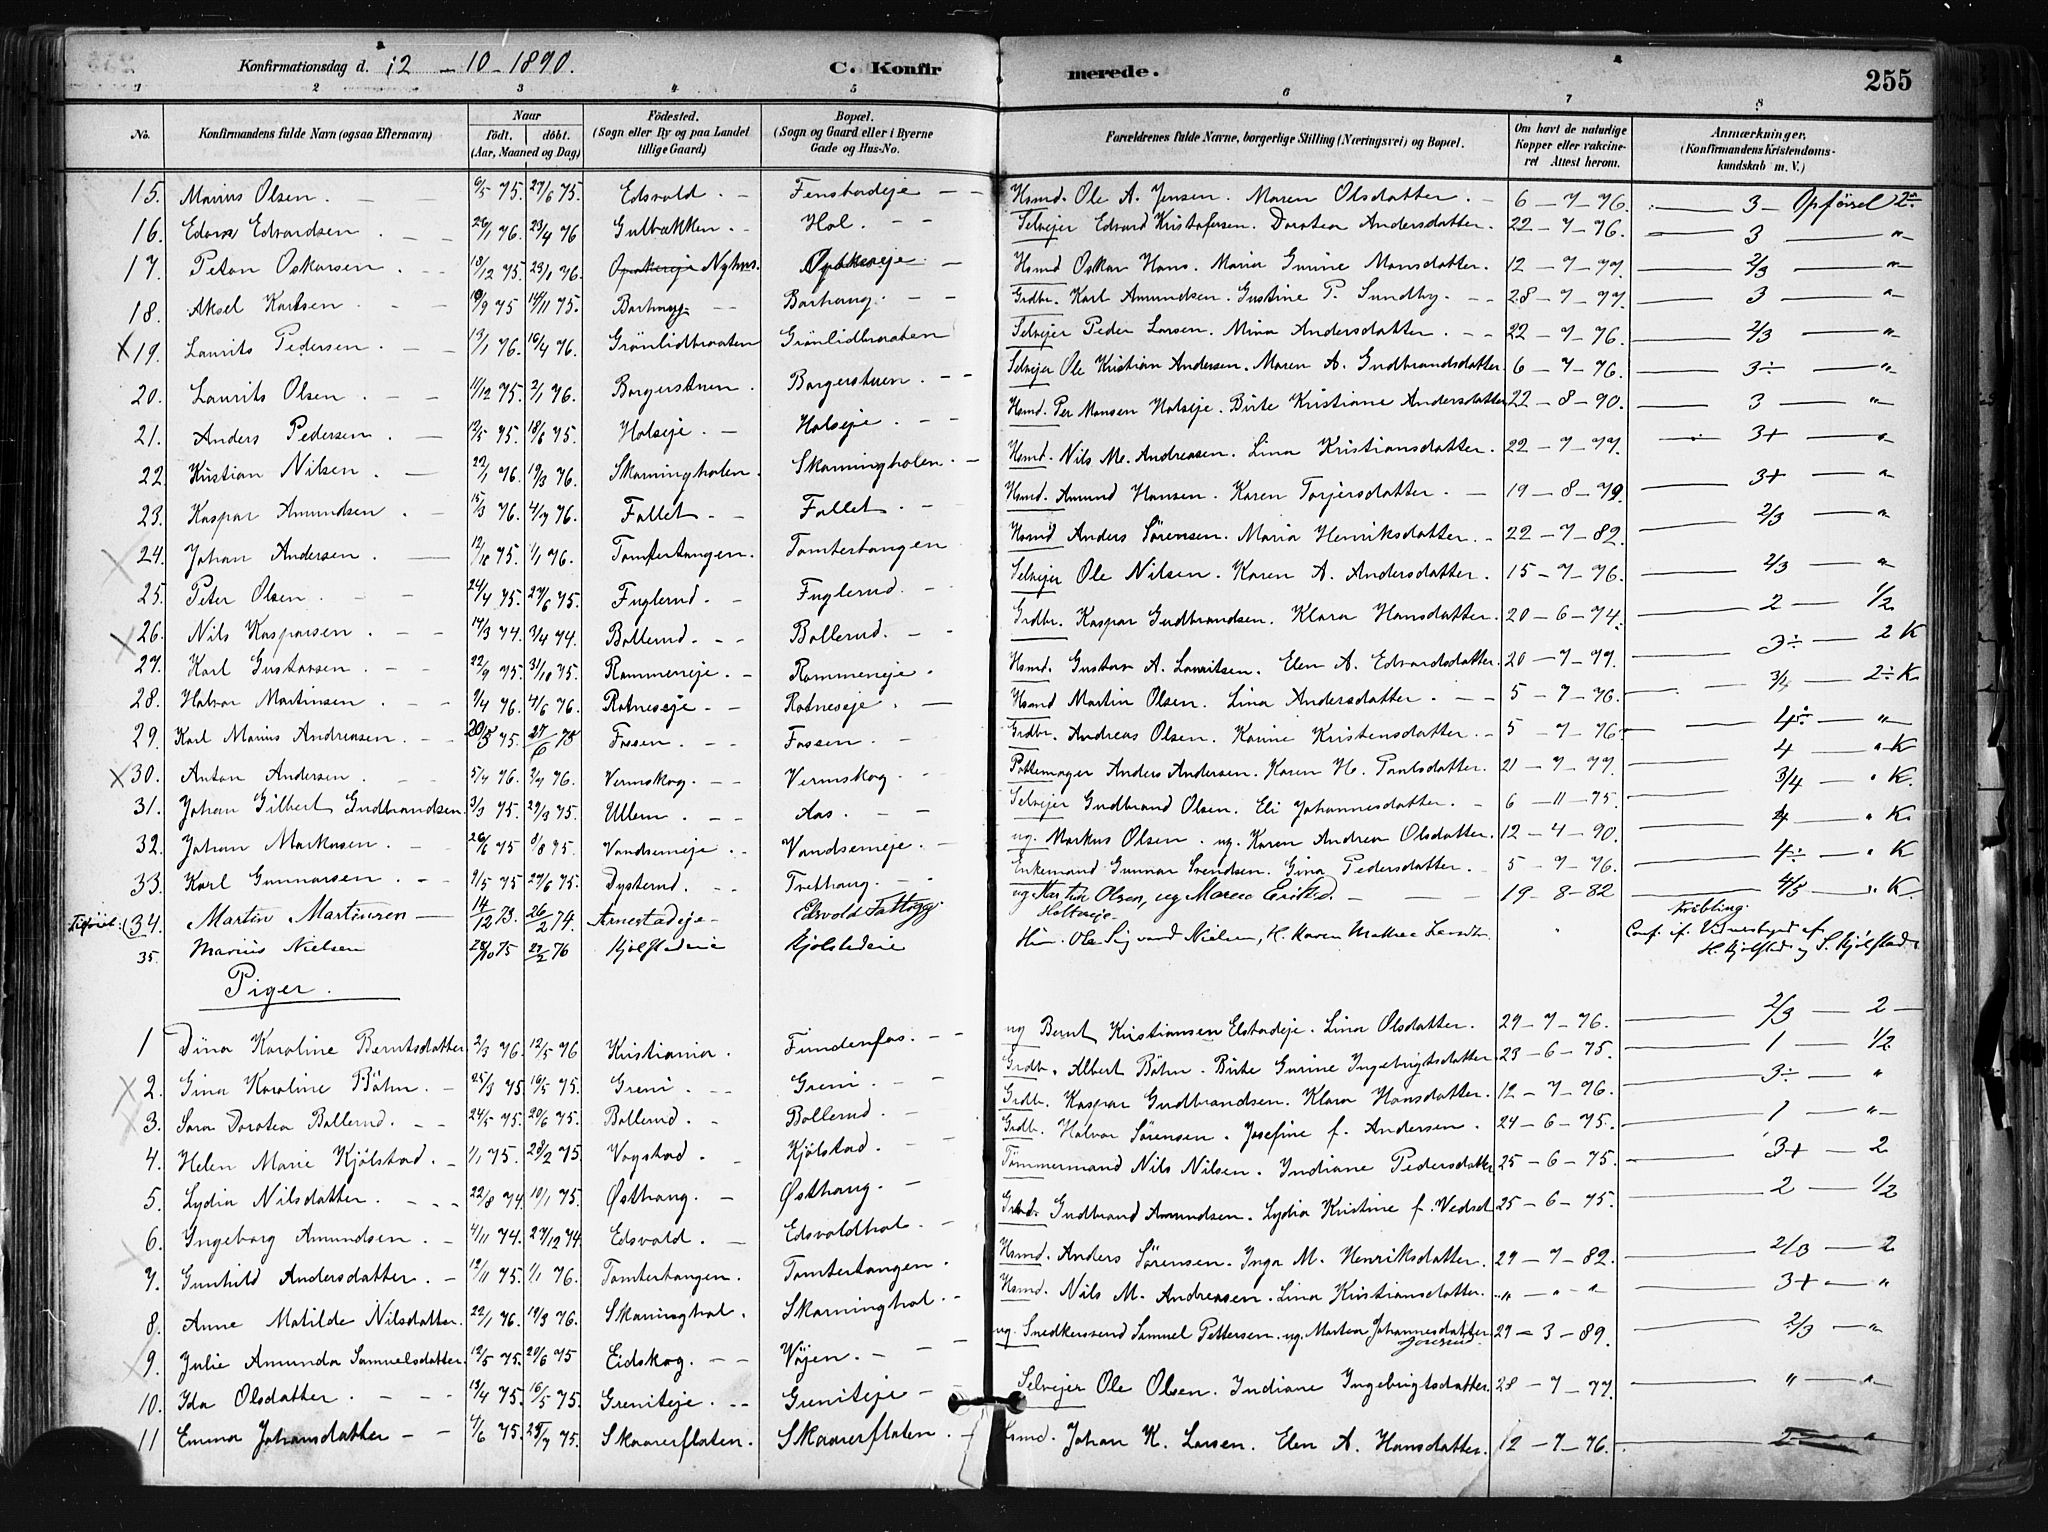 Konfirmationsdag d. 12 - 10 - 1890. C. Konfirmerede. 255
1 2 3 4 5 6 7 8
No. Konfirmandens fulde Navn (ogsaa Efternavn) Naar födt. döbt. (Aar, Maaned og Dag) Födested. (Sogn eller By og paa Landet tillige Gaard) Bopæl. (Sogn og Gaard eller i Byerne Gade og Hus-No. Forældrenes fulde Navne, borgerlige Stilling (Næringsvei) og Bopæl. Om havt de naturlige Kopper eller vakcineret Attest herom. Anmærkninger, (Konfirmandens Kristendomskundskab m. V.)
15. Marius Olsen. 6/5 75. 27/6 75. Edsvold Fenstadeje Hsmd. Ole A. Jensen. Maren Olsdatter. 6-7-76. 3 - Opførsel 2
16. Edvard Edvardsen 26/1 76. 23/4 76 Gulbækken Hol. Selvejer Edvard Kristofersen. Dorotea Andersdatter. 22-7-76. 3 "
17. Petan Oskarsen 13/12 75. 23/1 76. Nyhus. Opakereje Hsmd Oskar Hans. Maria Gurine Hansdatter. 12-7-77. 2/3 "
18. Aksel Karlsen 19/9 75 14/11 75. Borhaug Borhaug. Grdbr. Karl Amundsen. Gustine P. Sundby. 28-7-77. 3 "
x 19. Laurits Pedersen. 13/1 76. 16/4 76. Grönlidbraaten Grönlidbraaten Selvejer Peder Larsen. Mina Andersdatter. 22-7-76. 2/3 "
20. Laurits Olsen 11/12 75. 2/1 76. Borgerstuen. Borgerstuen. Selvejer Ole Kristian Andersen. Maren A. Gudbrandsdatter. 6-7-76. 3÷ "
21. Anders Pedersen 12/5 75. 18/6 75. Holseje. Holseje. Hsmd. Per Monsen Holseje. Birte Kristiane Andersdatter 22-8-90. 3 "
22. Kristian Nilsen 22/1 76. 19/3 76. Skaningholen. Skaningholen. Hsmd. Nils M. Andreasen. Lina Kristiansdatter. 22-7-77. 3+ "
23. Kaspar Amundsen 15/3 76. 4/7 76. Fallet Fallet. Hsmd. Amund Hansen. Karen Torgersdatter. 19-8-79. 3+ "
24. Johan Andersen. 12/10 75. 1/1 76. Tomtertangen. Tomtertangen Hsmd Anders Sörensen. Maria Henriksdatter. 22-7-82. 2/3 "
25. Peter Olsen 24/4 75. 27/6 75. Fuglerud. Fuglerud. Selvejer Ole Nilsen. Karen A. Andersdatter. 15-7-76. 2/3 "
26. Nils Kasparsen 14/3 74. 3/4 74. Bollerud. Bollerud. Grdbr. Kaspar Gudbrandsen. Klara Hansdatter. 20-6-74. 2 1/2
27. Karl Gustavsen 22/9 75. 31/10 75. Rommeneje. Rommeneje. Hsmd. Gustav A. Lauritsen. Elen A. Edvardsdatter. 20-7-77. 3÷ 2 K
28. Halvor Martinsen 9/4 76. 4/6 76. Rotneseje. Rotneseje. Hsmd Martin Olsen. Lina Andersdatter. 5-7-76. 3/4 2÷ K.
29. Karl Marius Andreasen. 20/5 75. 27/6 75 Fossen. Fossen. Grdbr. Andreas Olsen. Karine Kristensdatter. 5-7-76. 4÷ "
x 30. Anton Andersen 5/4 76. 2/7 76. Vermskog. Vermskog. Pottemager Anders Andersen. Karen H. Paulsdatter. 21-7-77. 4 " K
31. Johan Gilbert Gudbrandsen 3/3 75. 29/3 75. Ullern. Aas. Selvejer Gudbrand Olsen. Eli Johannesdatter. 6-11-75. 3/4 " K.
32. Johan Markusen. 26/6 75 8/8 75. Vandsemeje. Vandsemeje. ug. Markus Olsen. ug. Karen Andrea Olsdatter. 12-4-90. 4 " K.
33. Karl Gunnarsen. 9/5 75 27/6 75. Dysterud. Trethaug. Enkemand Gunnar Svendsen. Gina Pedersdatter. 5-7-76. 4÷ " K
Tilføiet: (34. Martin Martinsen 14/12 73. 26/2 74. Arnestadeje Edsvold Fattigg. ug Martin Olsen, ug Maren Eriksd. Holtereje. 19-8-82 4/5 " K.
35. Marius Nielsen 28/10 75 27/2 76 Kjølstadeie Kjølstadeie Hm. Ole Sigvard Nielsen, K. Karen Mathea Larsdtr. " Krøbling. Conf. if. Vidnesbyrd af H. Kjølstad og S. Kjølstad.
Piger.
1 Dina Karoline Berntsdatter 2/3 76. 12/5 76 Kristiania. Fundenfos. ug Bernt Kristiansen Elstadeje. Lina Olsdatter. 29-7-76. 2/3 2
2. Gina Karoline Böhn. 25/3 75. 16/5 75. Greni. Greni. Grdbr. Albert Böhn. Birte Gurine Ingebrigtsdatter. 23-6-75. 1 1/2
3. Sara Dorotea Bollerud. 24/5 75. 20/6 75. Bollerud Bollerud. Grdb. Kaspar Gudbrandsen. Klara Hansdatter. 12-7-76. 3÷ "
4. Helen Marie Kjölstad. 1/1 75. 28/2 75. Vogstad. Kjölstad. Grdb. Halvor Sörensen. Josefine f. Andersen. 24-6-75. 1 "
5. Lydia Nilsdatter. 22/8 74. 10/1 75. Østhaug. Østhaug. Tömmermand Nils Nilsen. Indiane Pedersdatter 25-6-75. 3+ 2
6. Ingeborg Amundsen. 4/11 74. 27/12 74. Edsvold. Edsvoldhol. Gudbrand Amundsen. Lydia Kristine f. Vedsel 25-6-75. 2 1/2
7. Gunhild Andersdatter. 12/11 75. 1/1 76. Tomtertangen. Tomtertangen. Hsmd. Anders Sörensen. Inga M. Henriksdatter. 29-7-82. 2/3 2
8. Anne Matilde Nilsdatter. 22/1 76. 19/3 76. Skaninghol. Skarninghol. Hsmd. Nils M. Andreasen. Lina Kristiansdatter. " " " 3+ "
9. Julie Amunda Samuelsdatter. 12/5 75. 20/6 75 Eidskog. Vöjen. ug. Snedkersvend Samuel Pettersen. ug. Martea Johannesdatter 29-3-89. 2/3 "
10. Ida Olsdatter. 13/4 75. 16/5 75. Greniteje. Greniteje Selvejer Ole Olsen. Indiane Ingebrigtsdatter. 28-7-77. " "
11 Emma Johansdatter 4/6 75. 25/7 75. Skaarerflaten. Skaarerflaten. Hsmd. Johan K. Larsen. Elen A. Hansdatter. 12-7-76. 2 "